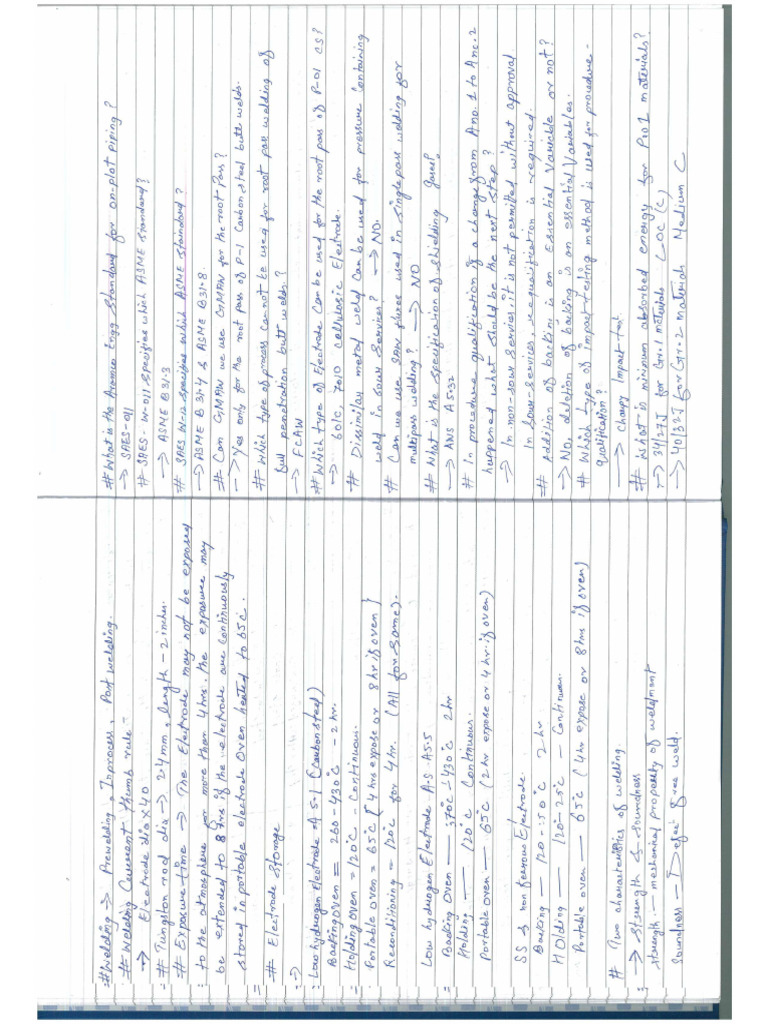 # Welding → Prewelding, Inprocess, Post welding.
# Welding Current thumb rule -
→ Electrode dia x 40
# Tungston rod dia → 2.4 mm, length - 2 inches.
# Exposure time → The Electrode may not be exposed
to the atmosphere for more than 4 hrs. the exposure may
be extended to 8 hrs if the electrode are continuously
stored in portable electrode oven heated to 65°C.
# Electrode Storage
→
Low hydrogen Electrode A 5.1 (Carbon steel)
Backing oven = 260 - 430°C - 2 hr.
Holding oven = 120°C - Continuous.
Portable oven = 65°C [4 hrs expose or 8 hr if oven]
Reconditioning = 120°C for 4 hr. (All for same).
Low hydrogen Electrode A.S A5.5
Backing Oven — 370°C - 430°C 2 hr
Holding — 120°C Continuous.
portable oven — 65°C (2 hr expose or 4 hr if oven)
SS → non ferrous Electrode.
Backing — 120 - 250°C 2 hr
Holding — 120 - 25°C - Continuous.
Portable oven — 65°C (4 hr expose or 8 hrs if oven)
# Two characteristics of welding.
→ Strength & soundness
Strength. — mechanical property of weldment
Soundness — Defect free weld.
# What is the Aramco Engg Standard for on-plot piping?
→ SAES-011
# SAES-W-011 Specifies which ASME Standard?
→ ASME B31.3
# SAES W-12 Specifies which ASME Standard?
→ ASME B31.4 & ASME B31.8
# Can GMAW we use GMAW for the root Pass?
→ Yes only for the root pass of P-1 Carbon steel butt welds.
# Which type of process cannot be used for root pass welding of
full penetration butt welds?
→ FCAW
# Which type of Electrode Can be used for the root pass of P-01 CS?
→ 6010, 7010 Cellulosic Electrode.
# Dissimilar metal weld Can be used for pressure containing
weld in Sour Services? → NO.
# Can we use SAW fluxes used in Single pass welding for
multipass welding? → NO
# What is the specification of shielding gases?
→ AWS A5.32
# In procedure qualification if a change from A no. 1 to A no. 2
happened what should be the next step?
→ In non-sour services, it is not permitted without approval
In Sour-services, requalification is required.
# Addition of backin is an Essential Variable or not?
→ No, deletion of backing is an essential Variables.
# Which type of impact testing method is used for procedure -
qualification?
→ charpy Impact test
# What is minimum absorbed energy for P no 1 materials?
→ 34/27J for Gr.1 materials LOC (C)
→ 40/32J for Gr.2 material Medium C